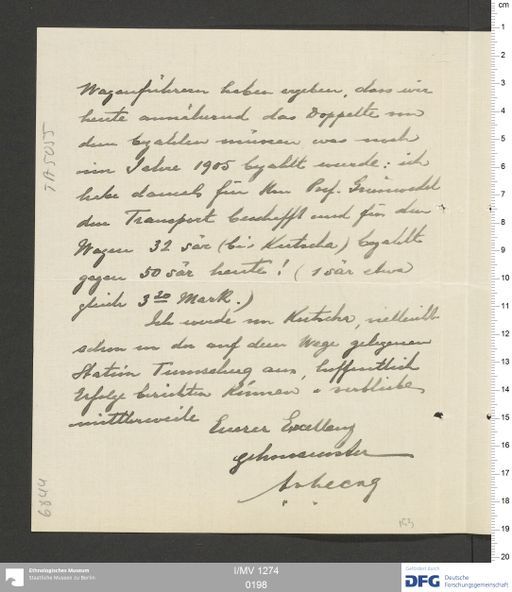 Wagenführern haben ergeben, dass wir
heute annähernd das Doppelte von
dem bezahlen müssen was noch
im Jahre 1905 bezahlt wurde: ich
habe damals für Hrn Prof. Grünwedel
den Transport beschafft und für den
Wagen 32 sär (bis Kutscha) bezahlt
gegen 50 sär heute! (1 sär etwa
gleich 3 20 Mark.)
Ich werde von Kutscha, vielleicht
schon von der auf dem Wege gelegenen
Station aus, hoffentlich
Erfolge berichten können & verbleibe
mittlerweile Euerer Excellenz
gehorsamster
TA 5055
6844
cm
1
2
3
4
5
6
7
8
9
10
11
12
13
14
15
16
17
18
19
20
Ethnologisches Museum
Staatliche Museen zu Berlin
I/MV 1274
0198
Gefördert durch
DFG Deutsche
Forschungsgemeinschaft